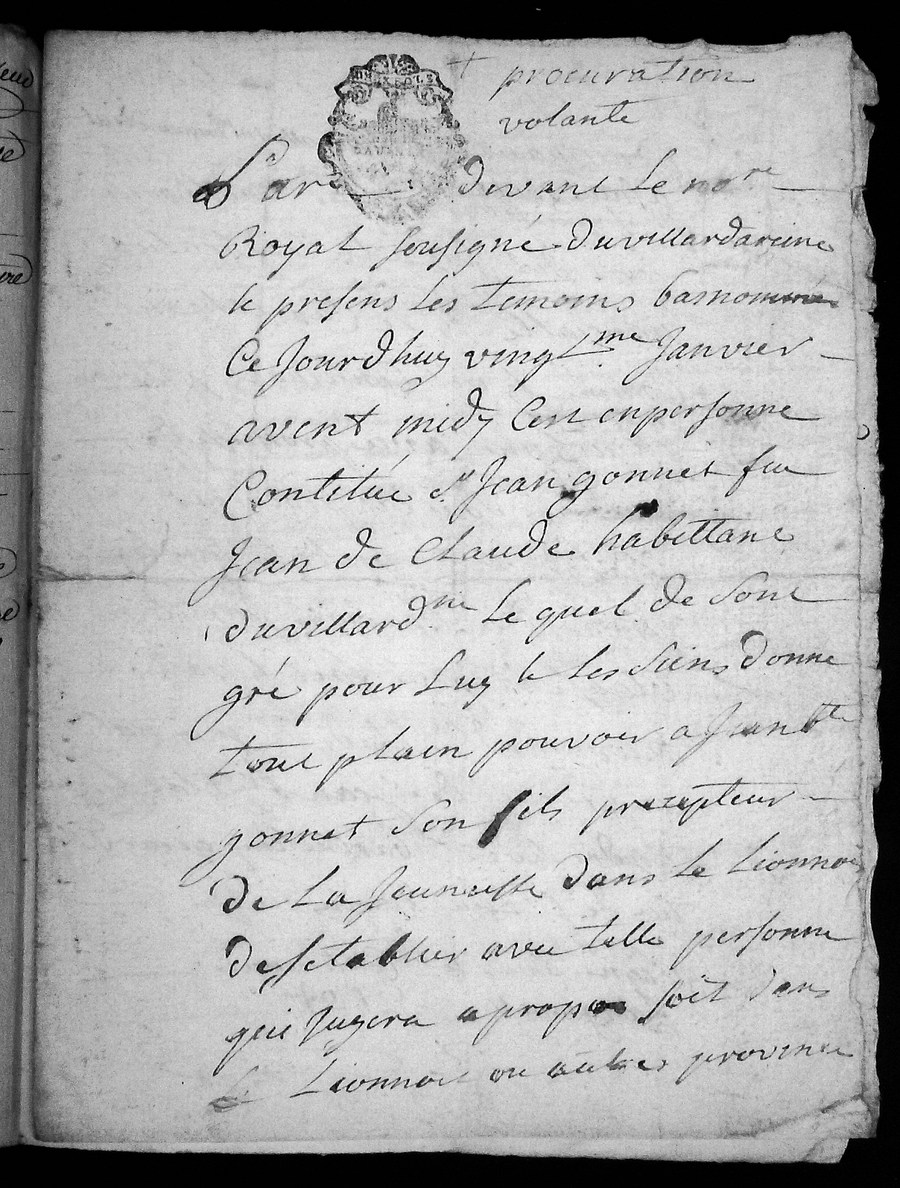 + procuration
volante
Par devant le nore
Royal sousigné duvillardareine
& presens les temoins basnommés
Ce jourdhuy vingtme janvier
avent midy Cest en personne
Contitué sr jean gonnet feu
jean de Claude habittant
duvillardne le quel de sont
gré pour luy & les siens donne
tout plain pouvoir a jean bte
gonnet son fils precepteur
de la jeunesse dans le lionnois
de setablier avec telle personne
qui jugera apropos soit dans
le lionnois ou autres province